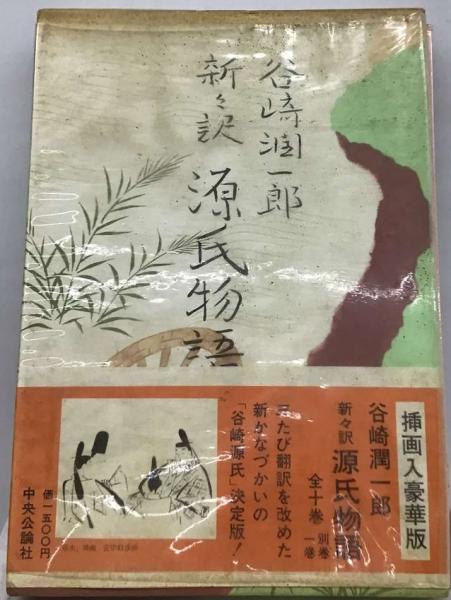 谷崎潤一郎
新々訳
源氏物語
挿画入豪華版
谷崎潤一郎
新々訳 源氏物語
全十巻 別巻一巻
三たび翻訳を改めた
新かなづかいの
「谷崎源氏」決定版!
価一五〇〇円
中央公論社